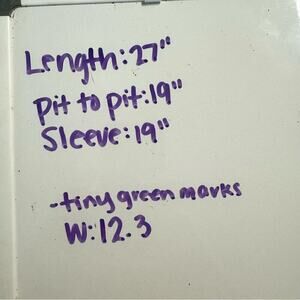 Length: 27"
pit to pit: 19"
Sleeve: 19"
-tiny green marks
W: 12.3